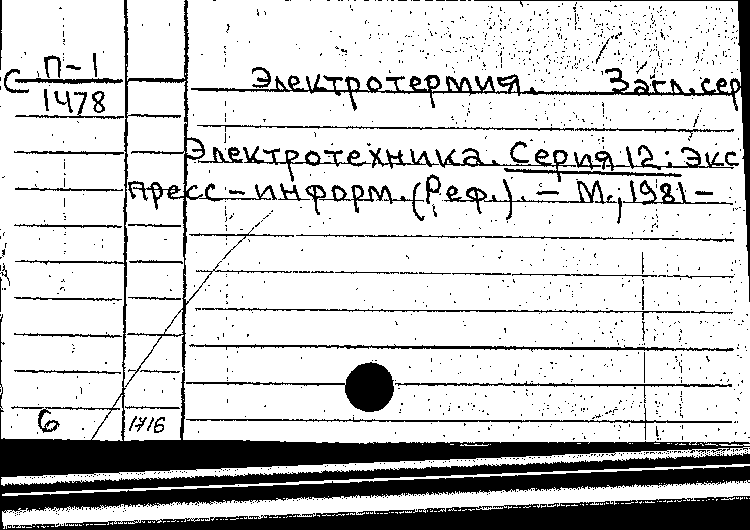 С П-1
1478
Электротермия. Загл.сер
Электротехника. Серия 12: Экс
пресс-информ. (Реф.). — М., 1981 —
6 1716